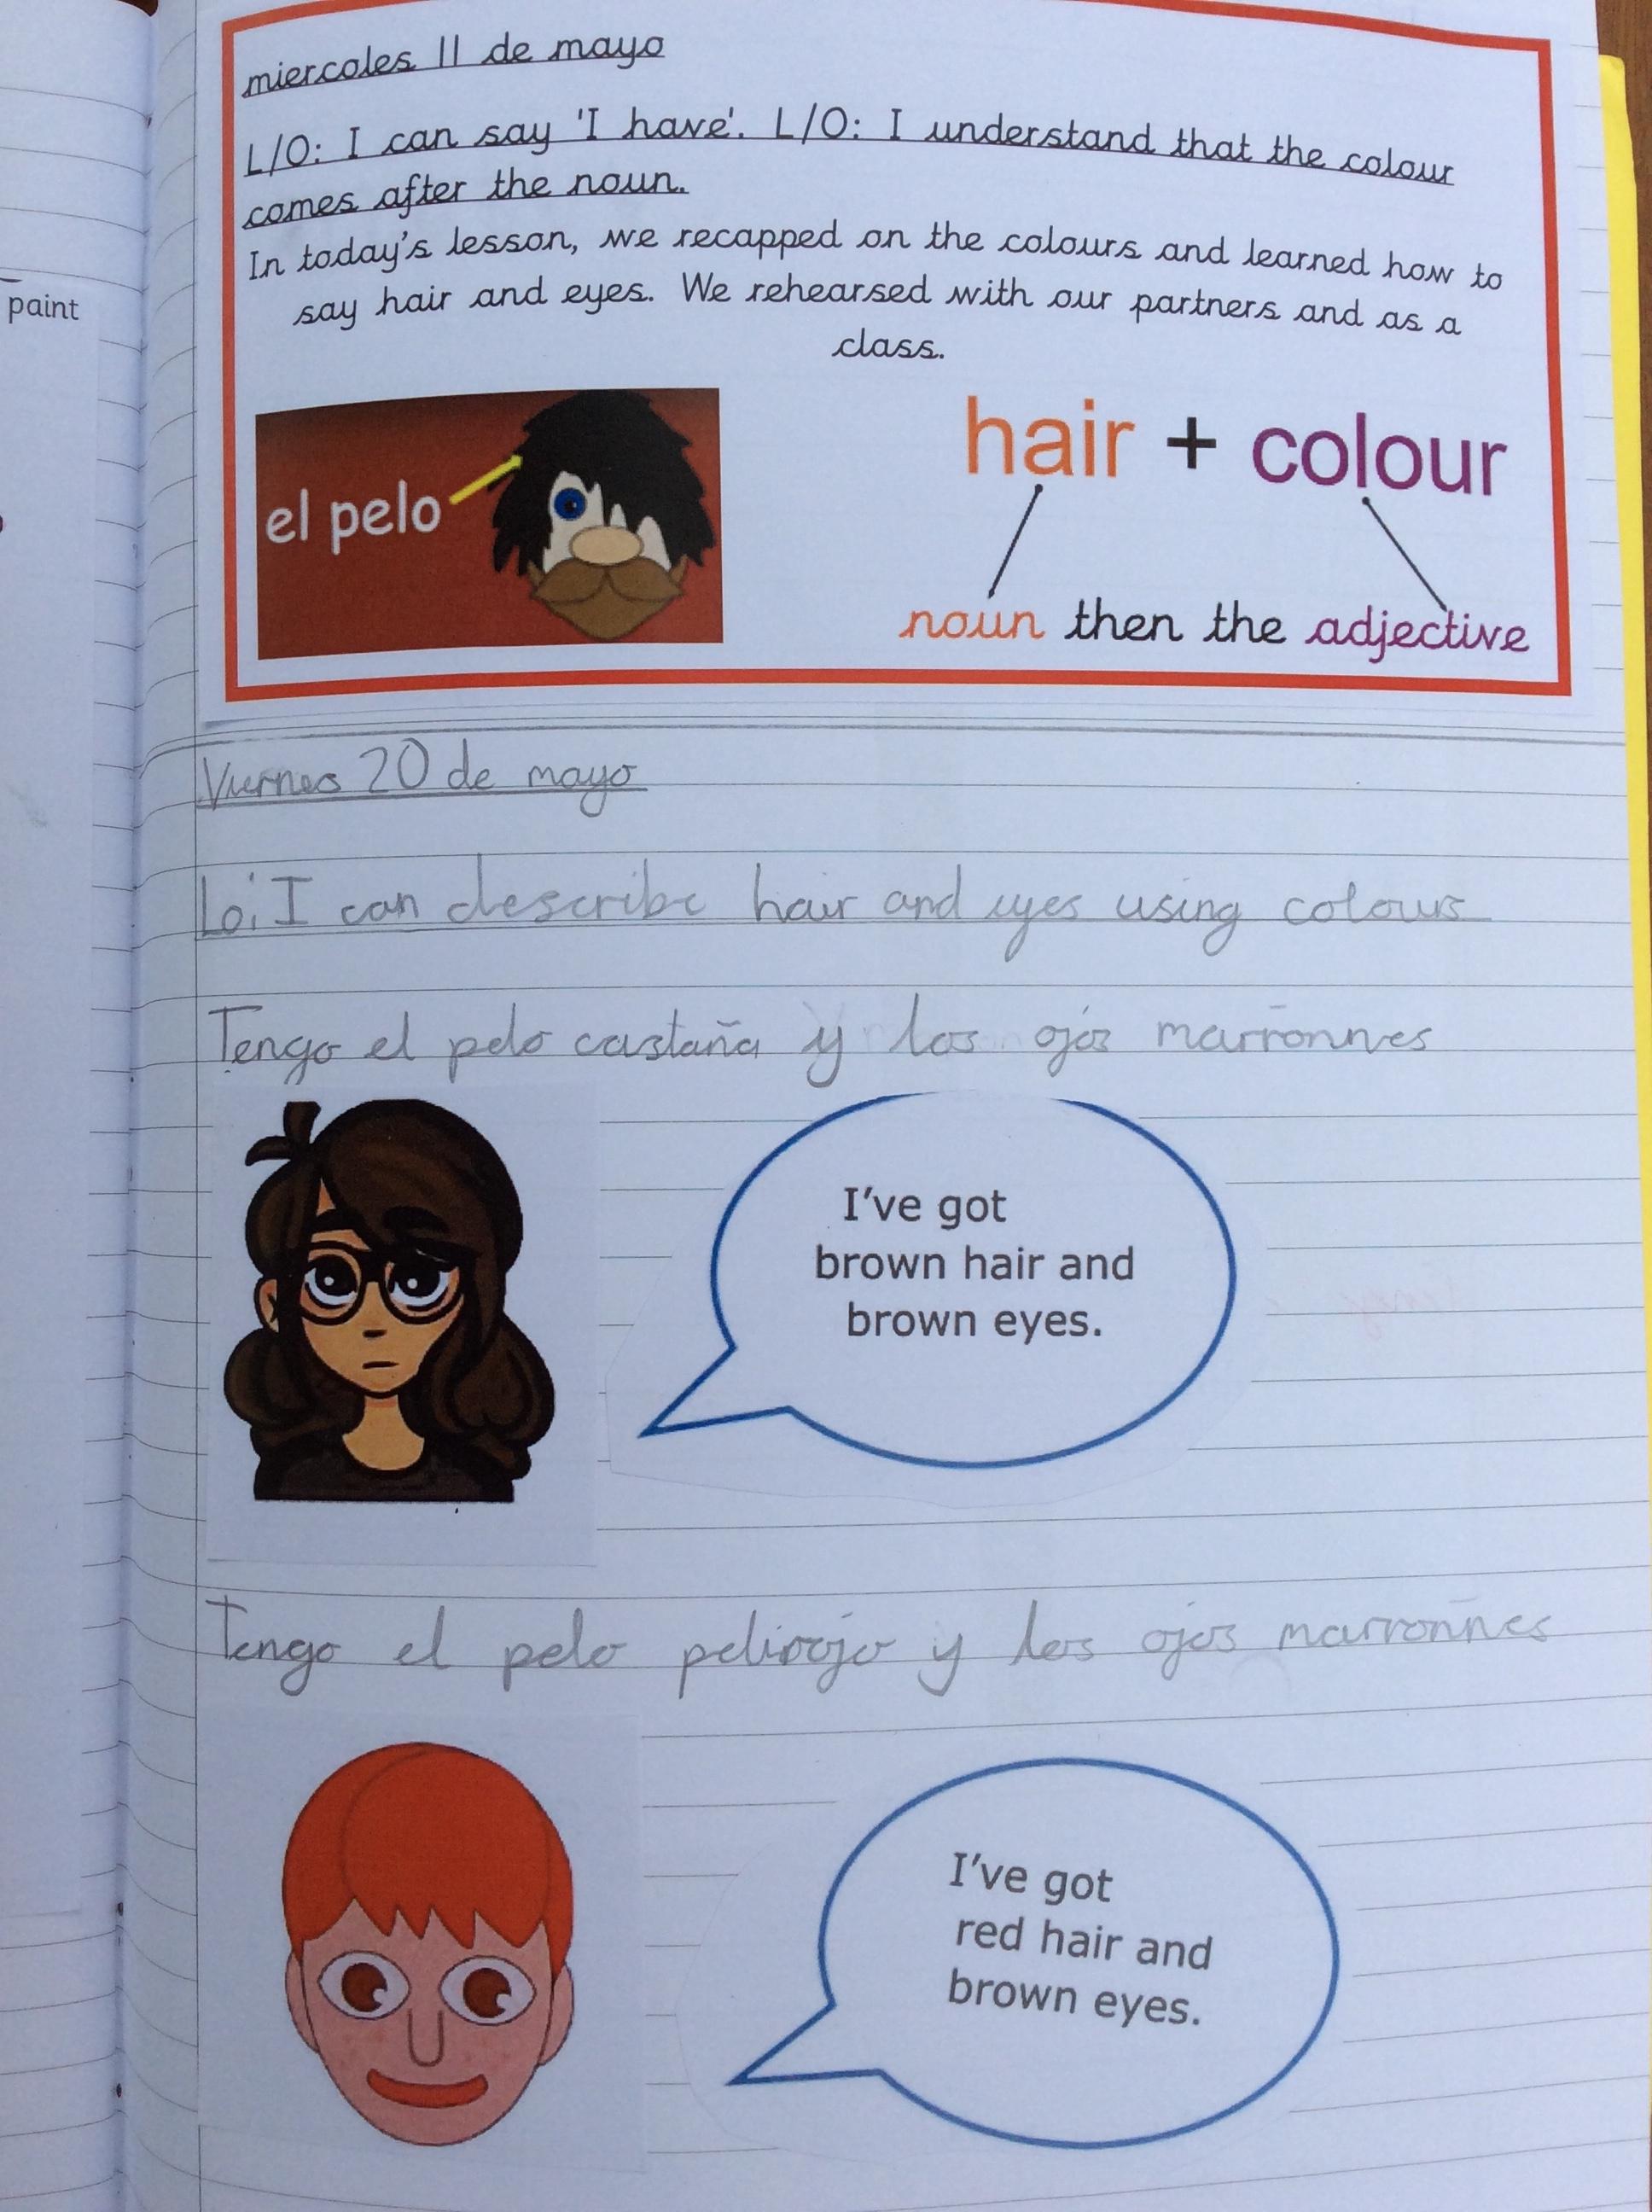 paint
miercoles 11 de mayo
L/O: I can say 'I have'. L/O: I understand that the colour
comes after the noun.
In today's lesson, we recapped on the colours and learned how to
say hair and eyes. We rehearsed with our partners and as a
class.
el pelo
hair + colour
noun then the adjective
Viernes 20 de mayo
Lo: I can describe hair and eyes using colours
Tengo el pelo castaña y los ojos marronnes
I've got
brown hair and
brown eyes.
Tengo el pelo pelirojo y los ojos marronñes
I've got
red hair and
brown eyes.